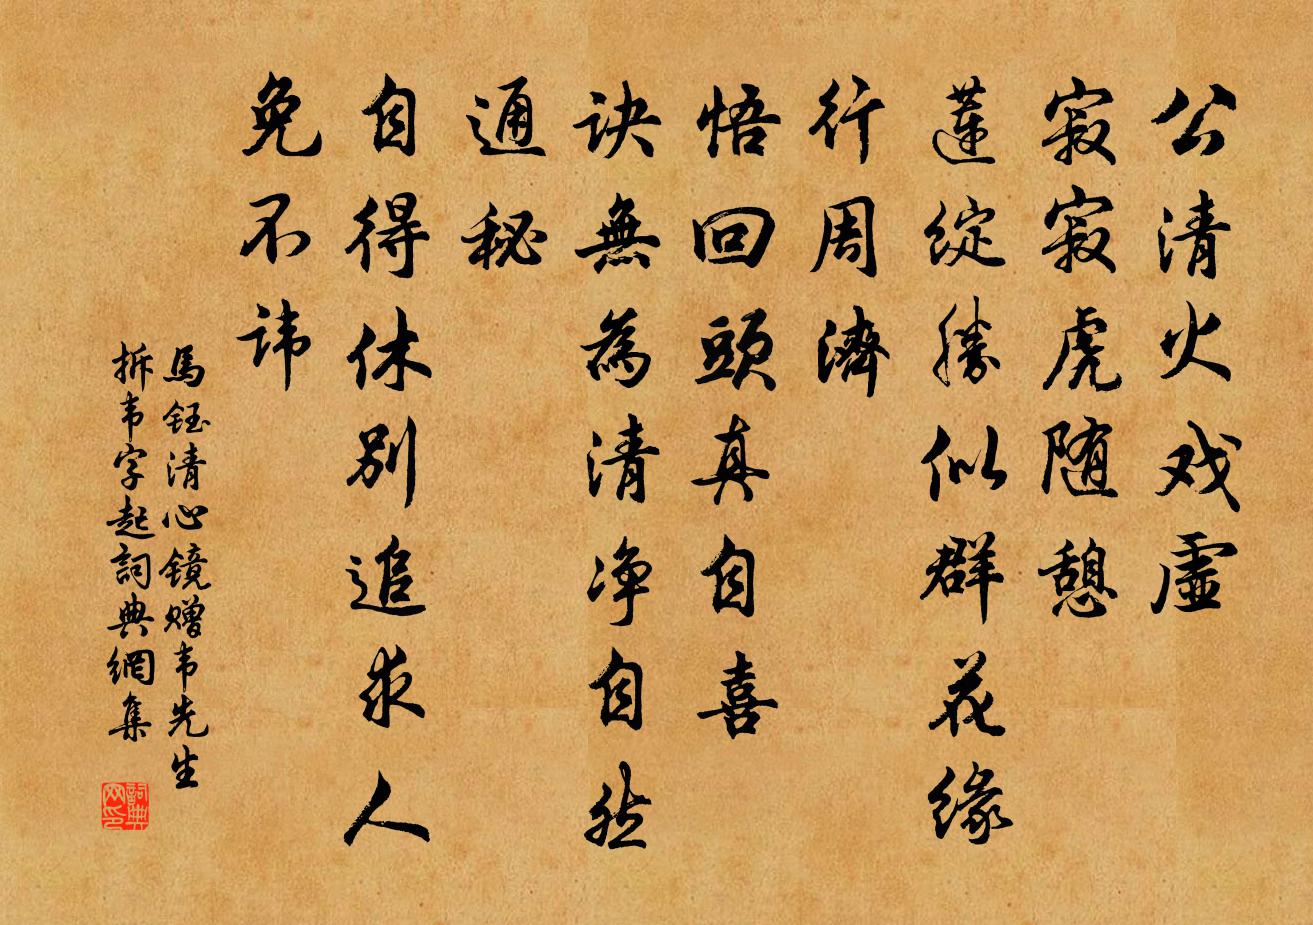 公清火戏虚
寂寂虎随憩
莲绽勝似群花缘
行周濟
悟回頭真自喜
诀無為清净自然
通秘
自得休别追求人
免不讳
馬鈺清心镜赠韦先生
拆韦字起詞典網集
詞典网印